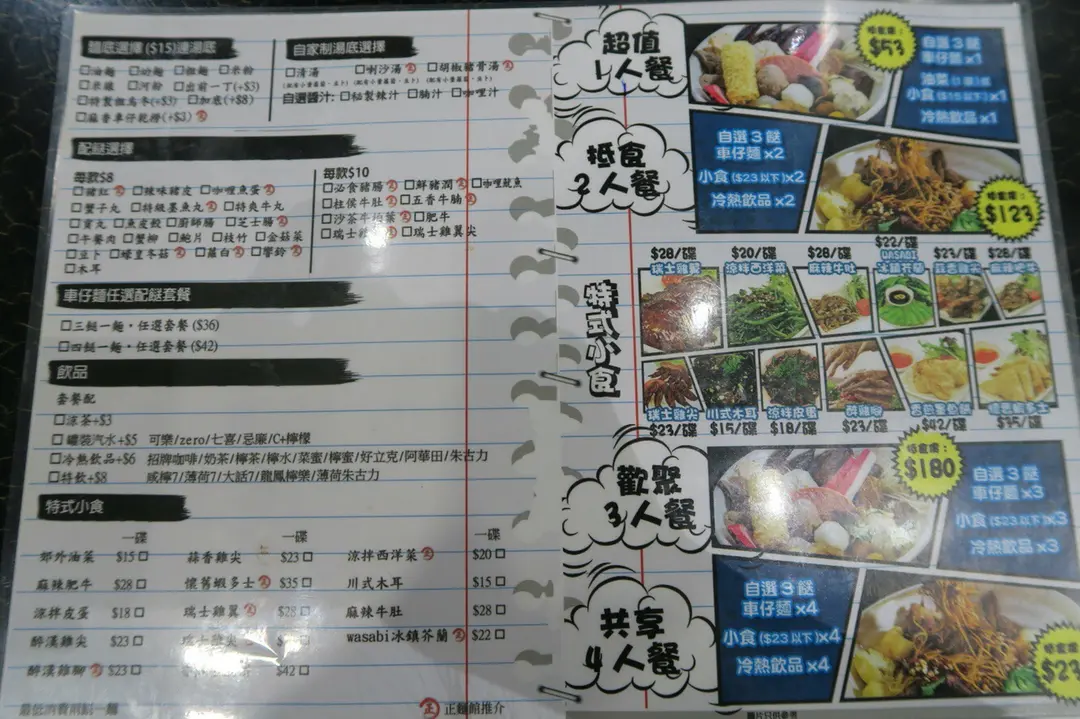 麵底選擇($15)連湯底
□油麵 □幼麵 □粗麵 □米粉
□米線 □河粉 □出前一丁(+$3)
□特製烏冬(+$3) □加底(+$8)
□蒜香車仔乾撈(+$3)
自家制湯底選擇
□清湯 □喇沙湯 □胡椒豬骨湯
自選醬汁: □秘製辣汁 □腩汁 □咖哩汁
配餸選擇
每款$8
□豬紅 □辣味豬皮 □咖哩魚蛋
□蟹子丸 □特級墨魚丸 □特爽牛丸
□貢丸 □魚皮餃 □廚師腸 □芝士腸
□午餐肉 □蟹柳 □鮑片 □枝竹 □金菇菜
□豆卜 □蠔皇冬菇 □蘿白 □響鈴
□木耳
每款$10
□必食豬腸 □鮮豬潤 □咖哩魷魚
□柱侯牛肚 □五香牛腩
□沙茶牛 □肥牛
□瑞士 □瑞士雞翼尖
車仔麵任選配餸套餐
□三餸一麵・任選套餐 ($36)
□四餸一麵・任選套餐 ($42)
飲品
套餐配
□涼茶+$3
□罐裝汽水+$5 可樂/zero/七喜/忌廉/C+檸檬
□冷熱飲品+$6 招牌咖啡/奶茶/檸茶/檸水/菜蜜/檸蜜/好立克/阿華田/朱古力
□特飲+$8 咸檸7/薄荷7/大話7/龍鳳檸樂/薄荷朱古力
特式小食
一碟 一碟 一碟
郊外油菜 $15□ 蒜香雞尖 $23□ 涼拌西洋菜 $20□
麻辣肥牛 $28□ 懷舊蝦多士 $35□ 川式木耳 $15□
涼拌皮蛋 $18□ 瑞士雞翼 $28□ 麻辣牛肚 $28□
醉漢雞尖 $23□ 瑞士雞尖 wasabi冰鎮芥蘭 $22□
醉漢雞腳 $23□ $42□
最低消費兩餸一麵
正 正麵館推介
超值
1人餐
$53
自選3餸
車仔麵x1
油菜(1份)或
小食($15以下)x1
冷熱飲品x1
抵食
2人餐
自選3餸
車仔麵x2
小食($23以下)x2
冷熱飲品x2
$123
特式小食
$28/碟 $20/碟 $28/碟 $22/碟 $23/碟 $28/碟
瑞士雞翼 涼拌西洋菜 麻辣牛肚 WASABI冰鎮芥蘭 蒜香雞尖 麻辣肥牛
瑞士雞尖 川式木耳 涼拌皮蛋 醉雞腳
$23/碟 $15/碟 $18/碟 $23/碟 $42/碟 $35/碟
歡聚
3人餐
$180
自選3餸
車仔麵x3
小食($23以下)x3
冷熱飲品x3
共享
4人餐
自選3餸
車仔麵x4
小食($23以下)x4
冷熱飲品x4
圖片只供參考